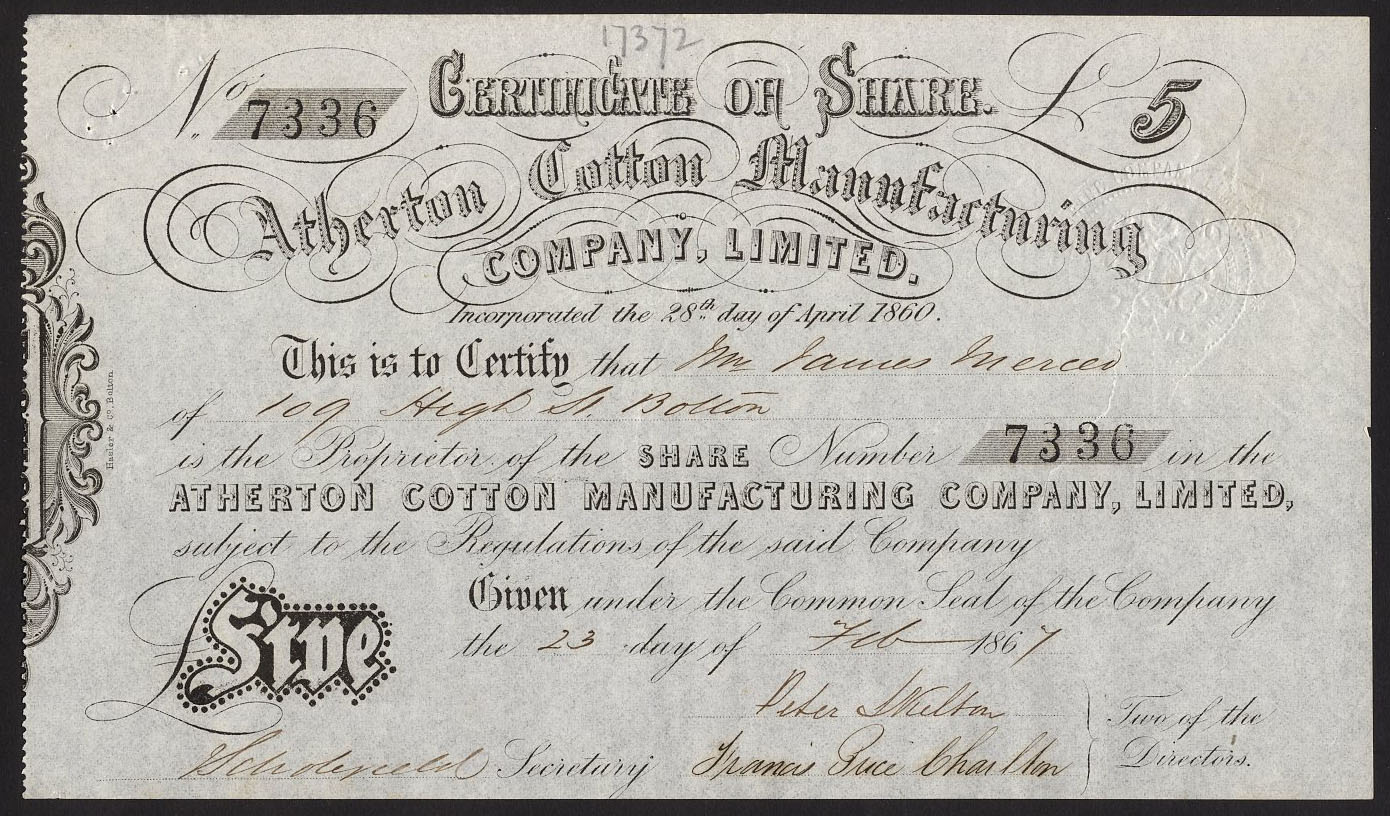 17372
No 7336 CERTIFICATE OF SHARE. £5
Atherton Cotton Manufacturing
COMPANY, LIMITED.
Incorporated the 28th day of April 1860.
This is to Certify that Mr James Mercer
of 109 High St. Bolton
is the Proprietor of the SHARE Number 7336 in the
ATHERTON COTTON MANUFACTURING COMPANY, LIMITED,
subject to the Regulations of the said Company
Given under the Common Seal of the Company
the 23 day of Feb 1867
£Five
Peter Skelton
Francis Price Charlton
Two of the
Directors.
Secretary
Bolton